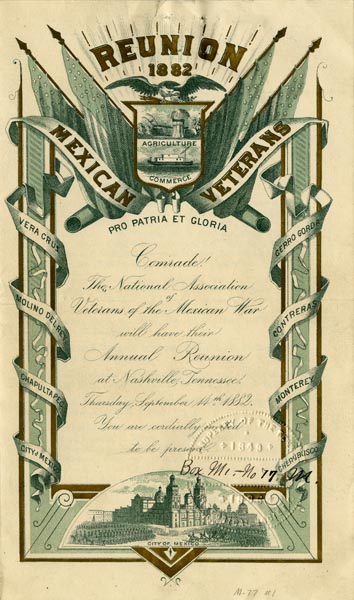 REUNION
1882
AGRICULTURE
COMMERCE
MEXICAN VETERANS
PRO PATRIA ET GLORIA
VERA CRUS
MOLINO DEL REY
CHAPULTAPEC
CITY OF MEXICO
CERRO GORDO
CONTRERAS
MONTEREY
CHERUBUSCO
Comrade!
The National Association
of
Veterans of the Mexican War
will have their
Annual Reunion
at Nashville, Tennessee,
Thursday, September 14th 1882.
You are cordially invited
to be present.
OF THE
1849
Box M1-No 77
CITY OF MEXICO
M-77 #1